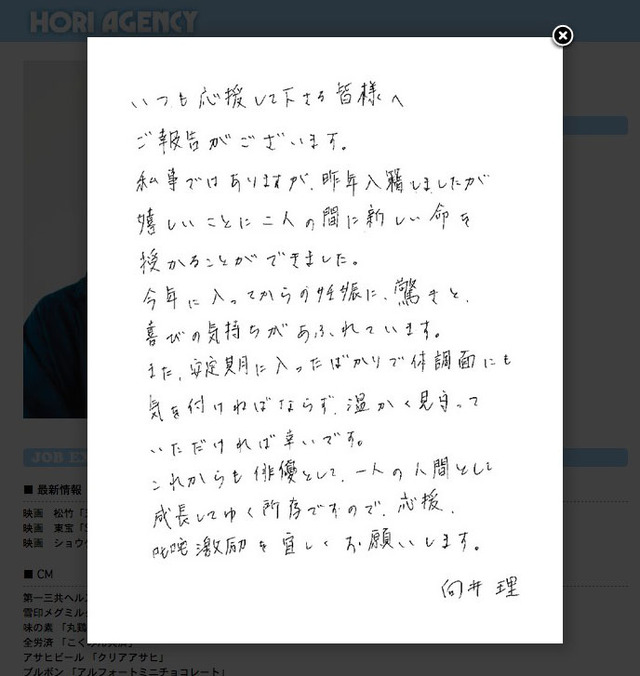 HORI AGENCY
いつも応援して下さる皆様へ
ご報告がございます。
私事ではありますが、昨年入籍しましたが
嬉しいことに二人の間に新しい命を
授かることができました。
今年に入ってからの妊娠に、驚きと、
喜びの気持ちがあふれています。
また、安定期に入ったばかりで体調面にも
気を付ければならず、温かく見守って
いただければ幸いです。
これからも俳優として、一人の人間として
成長してゆく所存ですので、応援、
叱咤激励を宜しくお願いします。
向井 理
JOB
■ 最新情報
映画 松竹
映画 東宝
映画 ショウゲ
■ CM
第一三共ヘル
雪印メグミル
味の素 「丸鶏
全労済 「こくみん共済」
アサヒビール 「クリアアサヒ」
ブルボン 「アルフォートミニチョコレート」